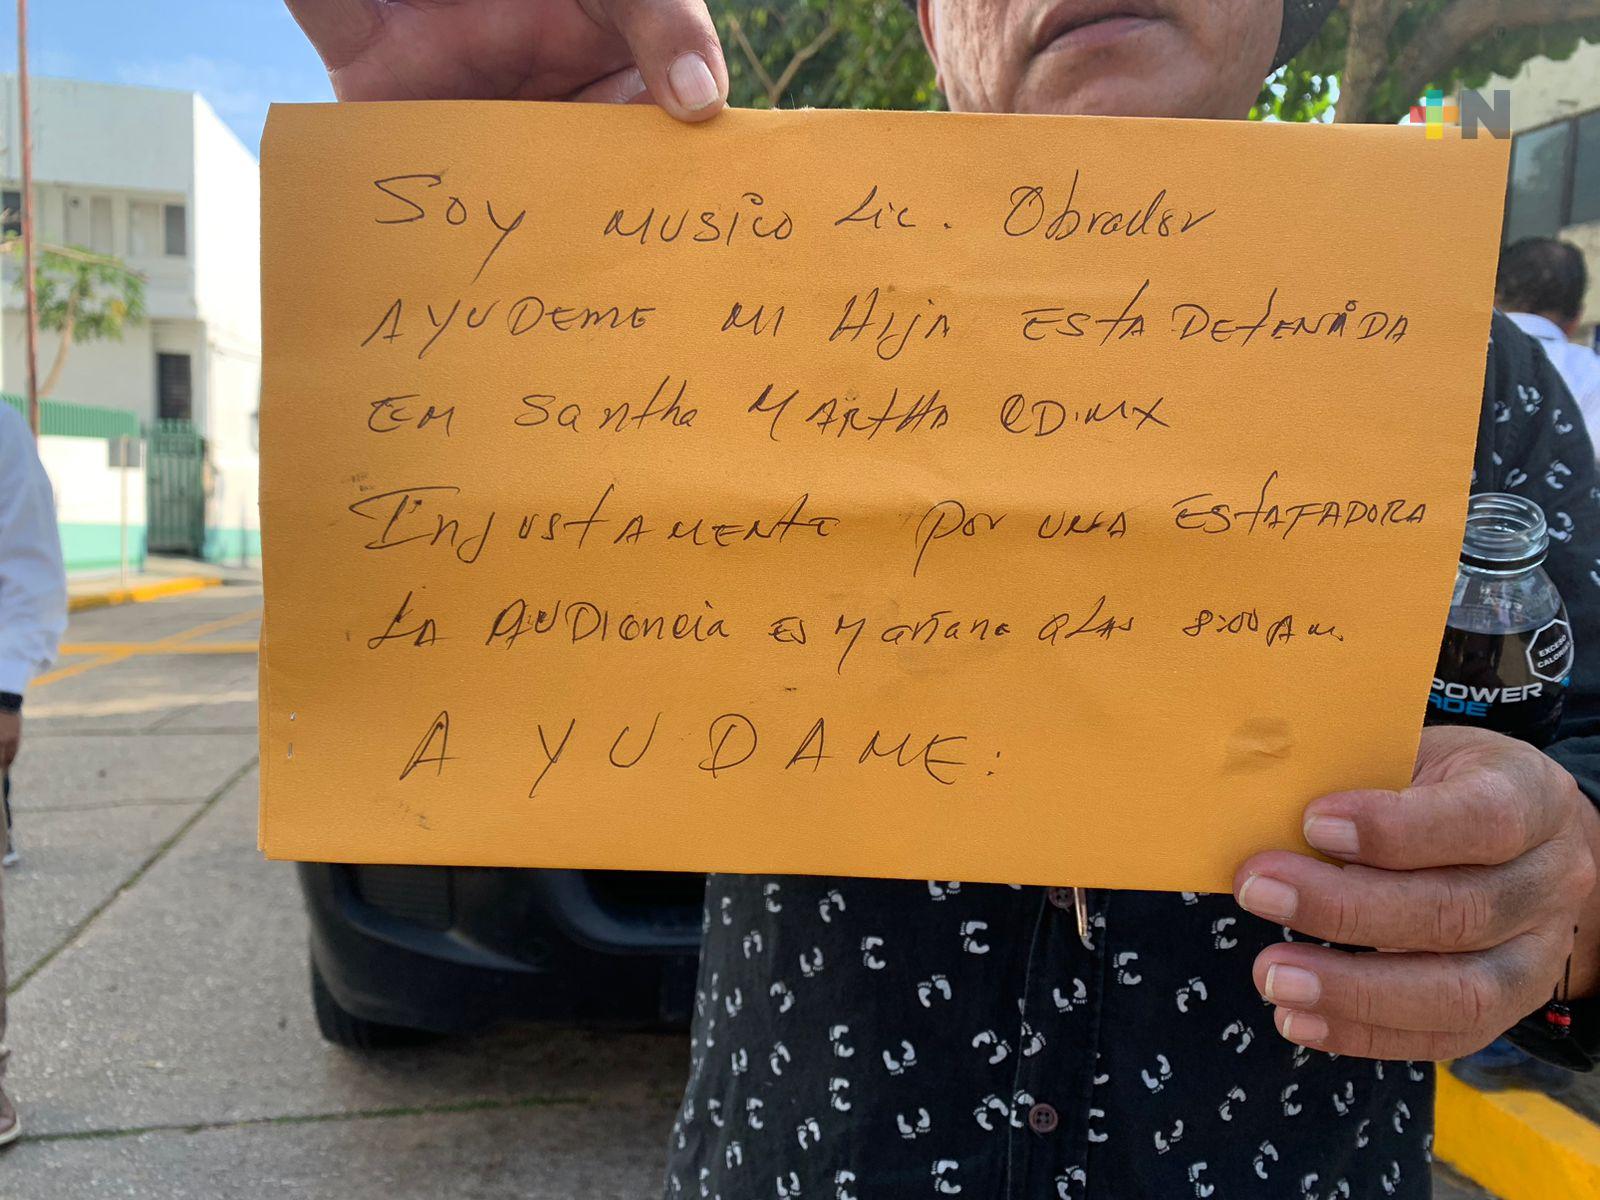 Soy musico Lic. Obrador
AYUDEME MI HIJA ESTA DETENIDA
EM Santha MARTHA CD.MX
INJUSTAMENTE por UNA ESTAFADORA
LA AUDIencia ES Mañana a LAS 8:00 AM.
AYUDAME:
+N
EXCESO
CALORÍAS
POWER
ADE